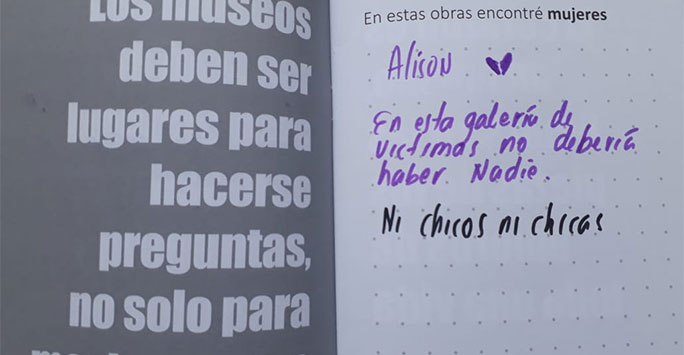 Los museos
deben ser
lugares para
hacerse
preguntas,
no solo para
En estas obras encontré mujeres
Alison
En esta galería de
victimas no debería
haber. Nadie.
Ni chicos ni chicas